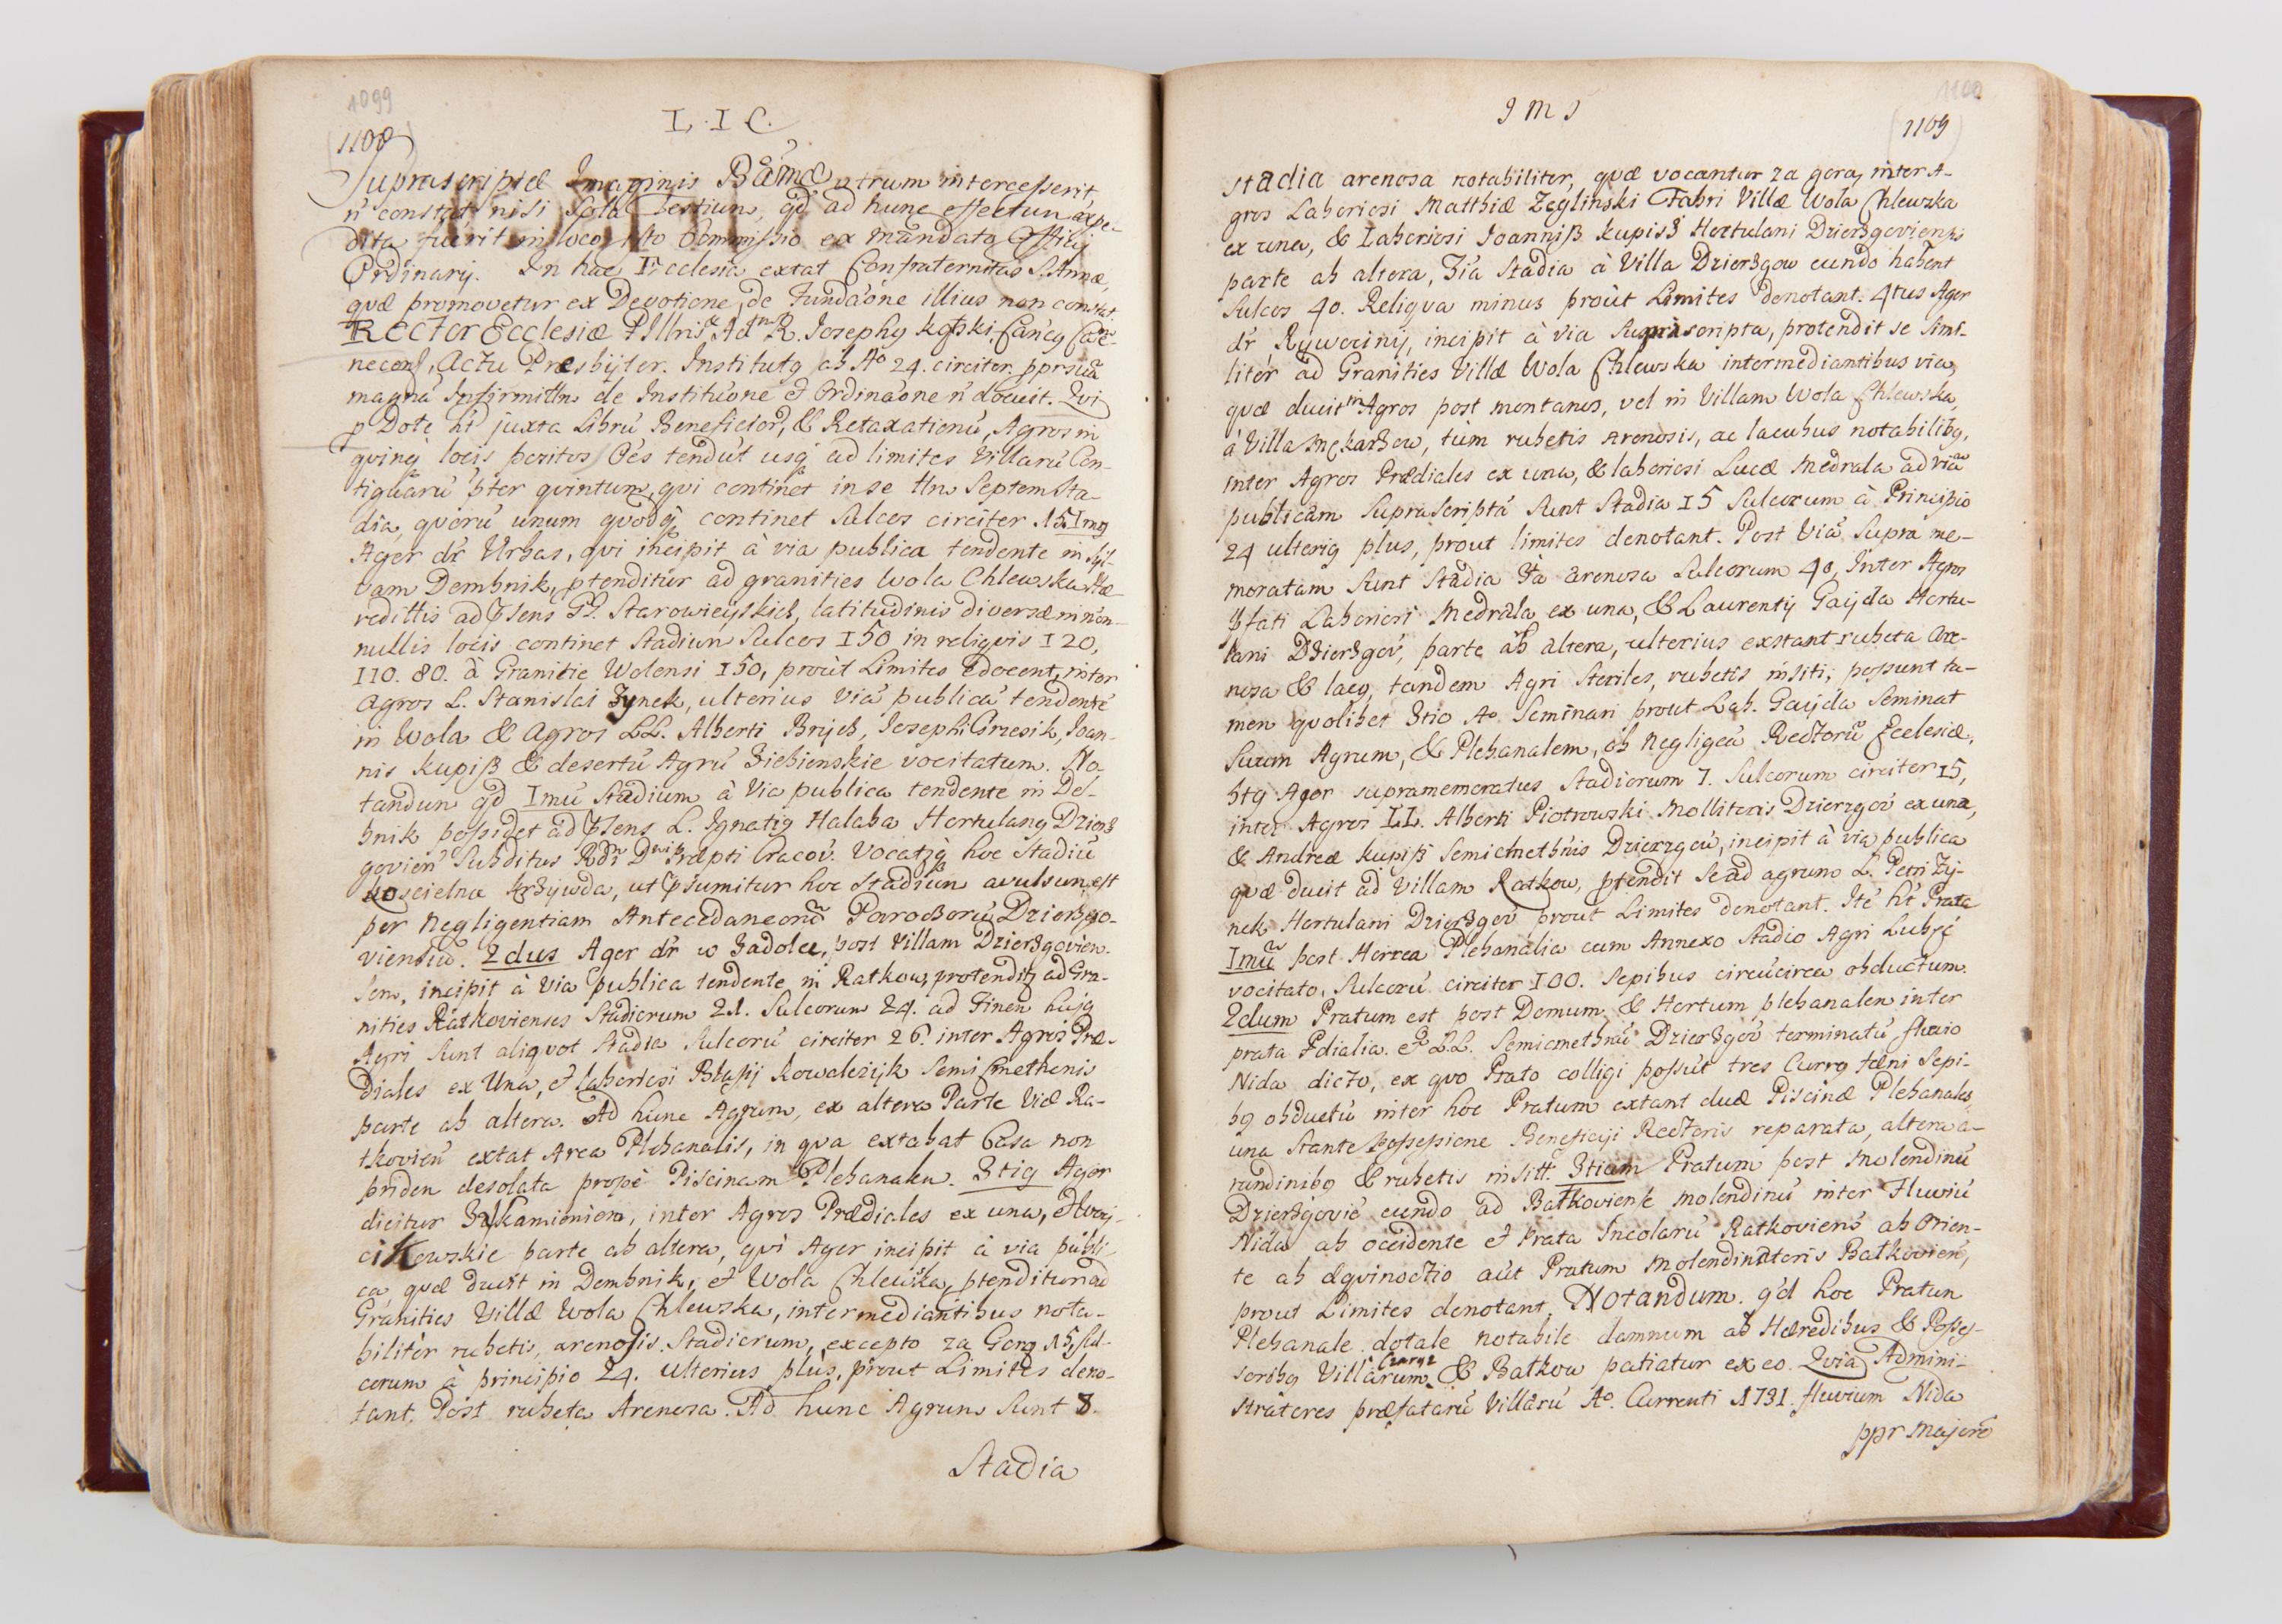 1099
L. I C.
1108
Suprascriptæ Imaginis B Annæ utrum intercesserit,
n constat nisi Sola Testium, qd ad hunc effectum expe-
dita fuerit in loco isto Commissio ex mandato Officij
Ordinarij. In hac Ecclesia extat Confraternitas S. Annæ,
quæ promovetur ex Devotione, de Fundaone illius non constat.
Rector Ecclesiæ PIllris Ad R. Josephg Kąski, Cancg
, Actu Præsbyter. Institutg ab Ao 24. circiter pprsuã
magnã Infirmittm de Institúone et Ordinaone n docuit. Qvi
p Dote ht juxta Librũ Beneficior, & Retaxationũ, Agros in
qvinq locis positos Oes tendut usq ad limites Villarũ Con-
tiguarũ pter qvintum, qvi continet in se ttm Septem Sta-
dia, qvorũ unum qvodq continet Sulcos circiter 15. Img
Ager dr Urbas, qvi incipit à via publica tendente in Syl-
vam Dembnik, ptenditur ad granities Wola Chlewska Hæ-
redittis ad Psens GG. Starowieyskich, latitudinis diversæ in non-
nullis locis continet Stadium Sulcos 150 in reliqvis 120,
110. 80. à Granitie Wolensi 150, proùt Limites edocent, inter
Agros L. Stanislai Zynek, ulterius viã publicã tendente
in Wola & Agros LL. Alberti Brych, Josephi Grzesik, Joan-
nis Kupiß & desertũ Agrũ Ziebienskie vocitatum. No
tandum qd Imũ Stadium à Via publica tendente in De-
bnik possidet ad Psens L. Ignatig Halaba Hortulang Dzierz
govien Subditus Rdi Dni Præpti Cracov. Vocatzq hoc Stadiũ
koscielna Krzywda, ut psumitur hoc Stadium avulsum est
per Negligentiam Antecedaneorũ Parochorũ Dzierzgo-
viensiũ. 2dus Ager dr w Zadolu, post Villam Dzierzgovien-
sem, incipit à via publica tendente in Ratkow, protendit ad Gra-
nities Ratkovienses Stadiorum 21. Sulcorum 24. ad Finem hujg
Agri sunt aliqvot Stadia Sulcorũ circiter 26. inter Agros Præ-
diales ex Una, et Laboriosi Błażij Kowalczyk Semi Cmethonis
parte ab altera. Ad hunc Agrum, ex altera Parte Viæ Ra-
tkovien extat Area Plebanalis, in qva extabat Casa non
priden desolata propè Piscinam Plebanalem. 3tig Ager
dicitur Kamieniem, inter Agros Prædiales ex una, et
cikowskie parte ab altera, qvi Ager incipit à via publi-
ca quæ ducit in Dembnik, et Wola Chlewska, ptenditur ad
Granities Villæ Wola Chlewska, intermediantibus nota-
biliter rubetis, arenosis. Stadiorum, excepto za Gorą 15, Sul-
corum à principio 24. ulterius plùs, prout Limites deno-
tant. Post rubeta Arenosa. Ad hunc Agrum Sunt 8.
Stadia
1100
I M I
1109
Stadia arenosa notabiliter, quæ vocantur za gorą inter A-
gros Laboriosi Matthiæ Zeglinski Fabri Villæ Wola Chlewska
ex una, & Laboriosi Joanniß Kupisz Hortulani Dzierzgoviensis
parte ab altera, 3ia Stadia à Villa Dzierzgow eundo habent
Sulcos 40. Reliqva minus proùt Limites denotant. 4tus Ager
dr Rywociny, incipit à via Suprascripta, protendit se Simi-
liter ad Granities Villæ Wola Chlewska intermediantibus via,
quæ ducit in Agros post montanos, vel in Villam Wola Chlewska,
à Villa Mękarzow, tùm rubetis Arenosis, ac lacubus notabilibg,
inter Agros Prædiales ex una, & laboriosi Lucæ Medrala ad viã
publicam Suprascriptã sunt Stadia 15 Sulcorum à Principio
24 ulterig plus, prout limites denotant. Post Viã Supra me-
moratam sunt Stadia 3ia arenosa Sulcorum 40, Inter Agros
Pfati Laboriosi Medrala ex una, & Laurentij Gayda Hortu-
lani Dzierzgov, parte ab altera, ulterius exstant rubeta are-
nosa & lacg, tandem Agri steriles, rubetis insiti; possunt ta-
men qvolibet 3tio Ao Seminari prout Lab. Gayda Seminat
Suum Agrum, & Plebanalem, ob Negligeã Rectorũ Ecclesiæ,
5tg Ager supramemoratus Stadiorum 7. Sulcorum circiter 15,
inter Agros LL. Alberti Piotrowski Mollitoris Dzierzgov ex una,
& Andreæ Kupiß Semicmethnis Dzierzgov, incipit à via publica
quæ ducit ad Villam Ratkow, ptendit se ad agrum L. Petri Zy-
nek Hortulani Dzierzgov prout Limites denotant. Ite ht Prata
Imũ post Horrea Plebanalia cum Annexo Stadio Agri Lubze
vocitato. Sulcorũ circiter 100. Sepibus circũcirca obductum.
2dum Pratum est post Domum & Hortum plebanalem inter
prata Pdialia. et LL. Semicmethnũ Dzierzgov terminatũ fluvio
Nida dicto, ex qvo Prato colligi possũt tres Currg fæni Sepi-
bg obductũ inter hoc Pratum extant duæ Piscinæ Plebanales
una stante possessione Beneficiji Rectoris reparata, altera a-
rundinibg & rubetis insitt. 3tium Pratum post Molendinũ
Dzierzgovie eundo ad Batkoviense molendinũ inter Fluviũ
Nida ab occidente et Prata Incolarũ Ratkoviens ab Orien-
te ab æqvinoctio aùt Pratum Molendinatoris Batkovien,
prout Limites denotant. Notandum. qd hoc Pratum
Plebanale dotale notabile damnum ab Hæredibus & Posses-
soribg Villarum & Batkow patiatur ex eo. Qvia Admini-
stratores præfatarũ Villarũ Ao. Currenti 1731. fluvium Nida
ppr majore